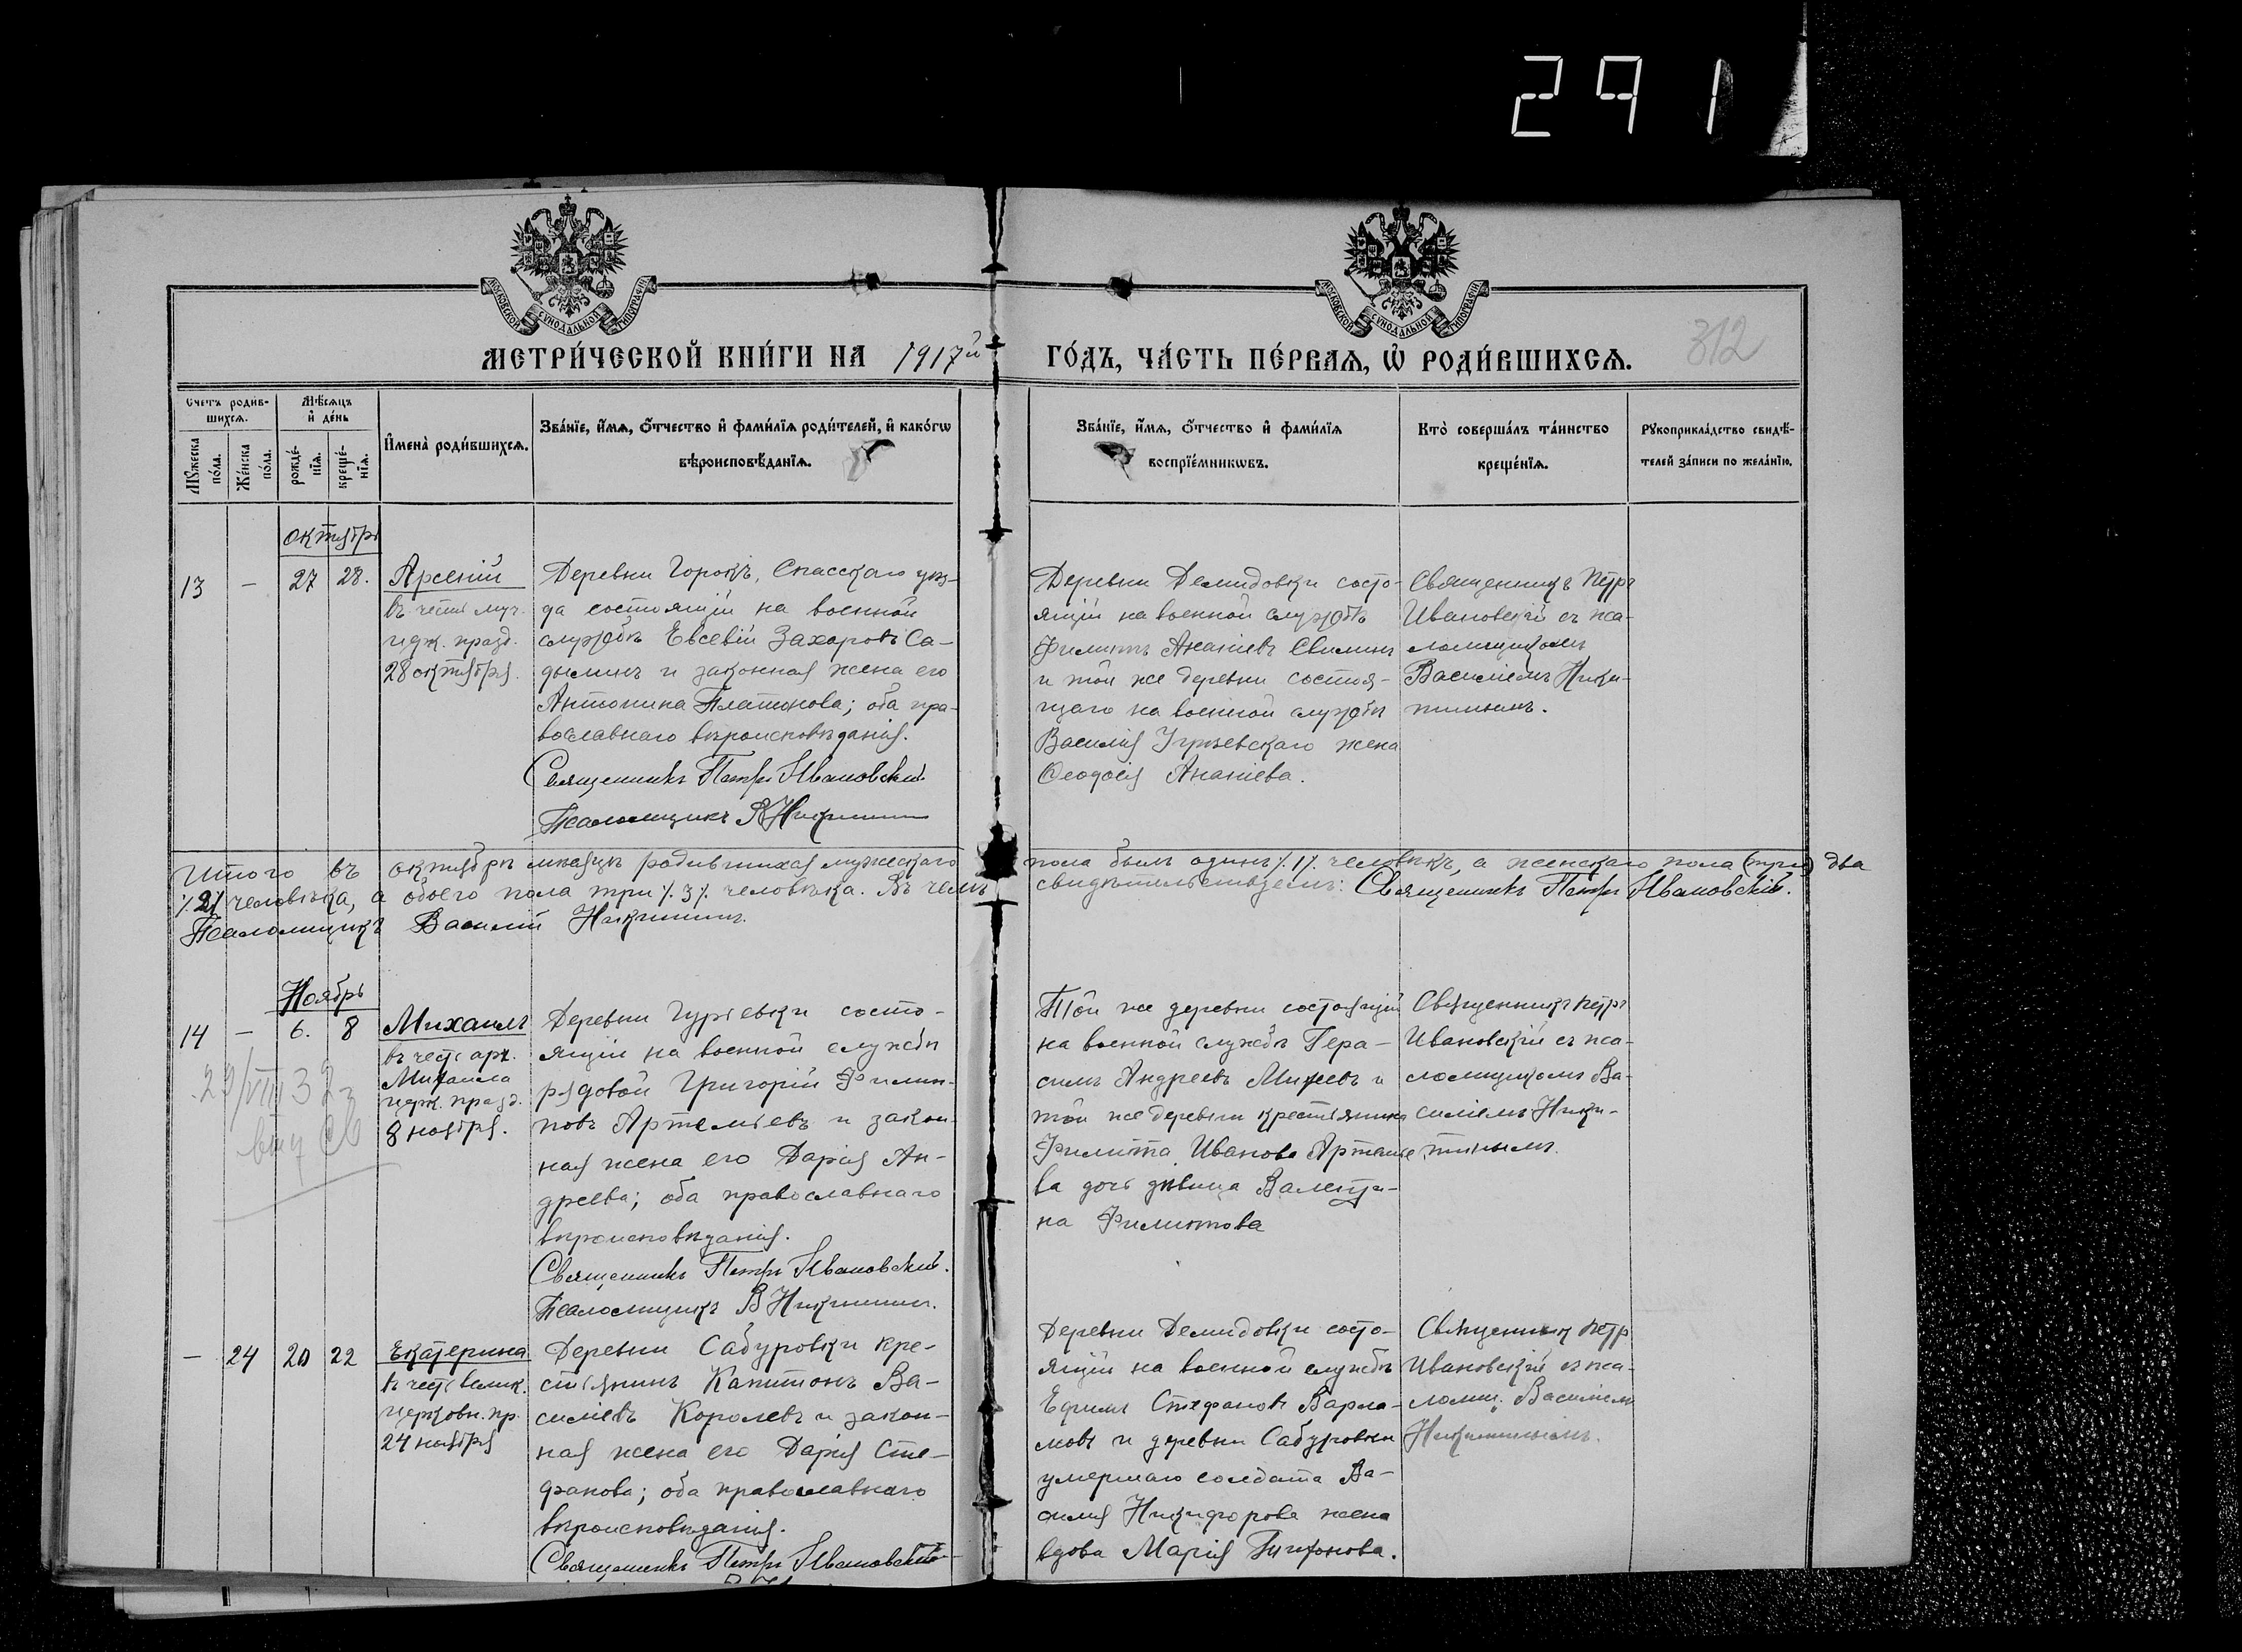 291
МОСКОВСКОЙ СѴНОДАЛЬНОЙ ТИПОГРАФІИ
МОСКОВСКОЙ СѴНОДАЛЬНОЙ ТИПОГРАФІИ
МЕТРИ́ЧЕСКОЙ КНИ́ГИ НА 1917й ГО́ДЪ, ЧА́СТЬ ПЕ́РВАЯ, Ѽ РОДИ́ВШИХСЯ.
312
Счетъ роди́в-
шихся.
Мѣсяцъ
и҆ де́нь
Мꙋжеска
по́ла.
Же́нска
по́ла.
рожде́-
нїя.
креще́-
нїя.
И҆мена̀ роди́вшихся.
Зва́нїе, и҆́мя, ѻ҆́тчество и҆ фами́лїя роди́телей, и҆ како́гѡ
вѣроисповѣ́данїя.
Зва́нїе, и҆́мя, ѻ҆́тчество и҆ фами́лїя
воспрїе́мникѡвъ.
Кто̀ соверша́лъ та́инство
креще́нїя.
Рꙋкоприкла́дство свидѣ́-
телей за́писи по жела́нїю.
октябрь
13
—
27
28.
Арсеній
въ честь муч.
церк. празд.
28 октября.
Деревни Горокъ, Спасскаго уѣз-
да состоящій на военной
службѣ Евсевій Захаровъ Са-
дылинъ и законная жена его
Антонина Платонова; оба пра-
вославнаго вѣроисповѣданія.
Священникъ Петръ Ивановскій.
Псаломщикъ В Никитинъ
Деревни Демидовки состо-
ящій на военной службѣ
Филиппъ Ананіевъ Свилинъ
и той же деревни состоя-
щаго на военной службѣ
Василія Угрževскаго жена
Ѳеодосія Ананіева.
Священникъ Петръ
Ивановскій съ пса-
ломщикомъ
Василіемъ Ники-
тинымъ.
Итого въ октябрѣ мѣсяцѣ родившихся мужескаго пола былъ одинъ /.1/. человѣкъ, а женскаго пола (три) два
/.2/. человѣка, а обоего пола три /.3/. человѣка. Въ чемъ свидѣтельствуемъ: Священникъ Петръ Ивановскій.
Псаломщикъ Василій Никитинъ.
Ноябрь
14
—
6.
8
Михаилъ
въ честь арх.
Михаила
церк. празд.
8 ноября.
29/VIII 32 г
выд св
Деревни Гурьевки состо-
ящій на военной службѣ
рядовой Григорій Филип-
повъ Артемьевъ и закон-
ная жена его Дарія Ан-
дреева; оба православнаго
вѣроисповѣданія.
Священникъ Петръ Ивановскій.
Псаломщикъ В Никитинъ.
Той же деревни состоящій
на военной службѣ Гера-
симъ Андреевъ Михеевъ и
той же деревни крестьянина
Филиппа Иванова Артемье
ва дочь дѣвица Валенти-
на Филиппова
Священникъ Петръ
Ивановскій съ пса-
ломщикомъ Ва-
силіемъ Ники-
тинымъ.
—
24
20
22
Екатерина
въ честь велик.
церковн. пр.
24 ноября
Деревни Сабуровки кре-
стьянинъ Капитонъ Ва-
силіевъ Королевъ и закон-
ная жена его Дарія Сте-
фанова; оба православнаго
вѣроисповѣданія.
Священникъ Петръ Ивановскій
Деревни Демидовки состо-
ящій на военной службѣ
Ефимъ Стефановъ Варла-
мовъ и деревни Сабуровки
умершаго солдата Ва-
силія Никифорова жена
вдова Марія Тихонова.
Священникъ Петръ
Ивановскій съ пса-
ломщ. Василіемъ
Никитинымъ.